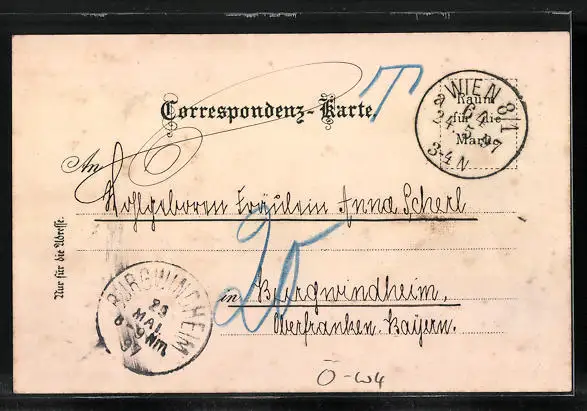 T
Correspondenz-Karte.
WIEN 8/1
a 64
24.5.97
3-4 N
Raum
für die
Marke
An
Wohlgeboren Fräulein Anna Scherl
20
in Burgwindheim,
Oberfranken. Bayern.
Nur für die Adresse.
BURGWINDHEIM
MAI
97
Ö-W4